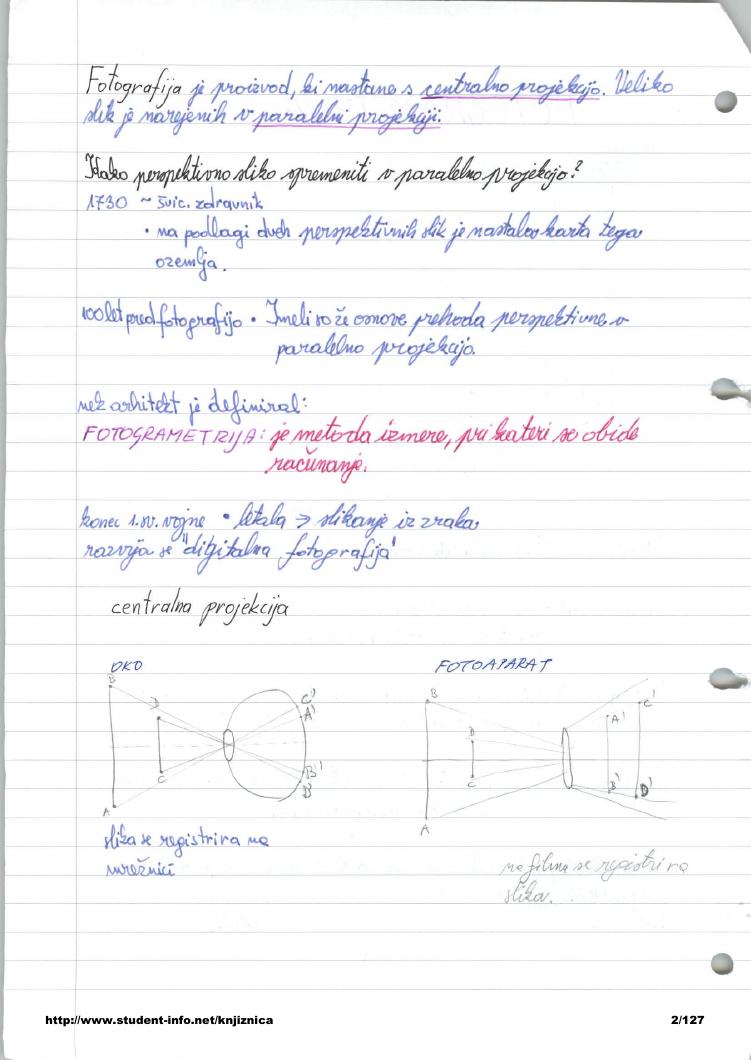 Fotografija je proizvod, ki nastane s centralno projekcijo. Veliko
slik je narejenih v paralelni projekciji.
Kako perspektivno sliko spremeniti v paralelno projekcijo?
1730 ~ švic. zdravnik
• na podlagi dveh perspektivnih slik je nastala karta tega
ozemlja.
100 let pred fotografijo • Imeli so že osnove prehoda perspektivne v
paralelno projekcijo.
nek arhitekt je definiral:
FOTOGRAMETRIJA: je metoda izmere, pri kateri se obide
računanje.
konec 1. sv. vojne • letala → slikanje iz zraka
razvija se "digitalna fotografija"
centralna projekcija
OKO
FOTOAPARAT
B
D
C
A
C'
A'
B'
B
D
C
A
A'
C'
B'
D'
slika se registrira na
mrežnici
na filmu se registrira
slika.
http://www.student-info.net/knjiznica
2/127